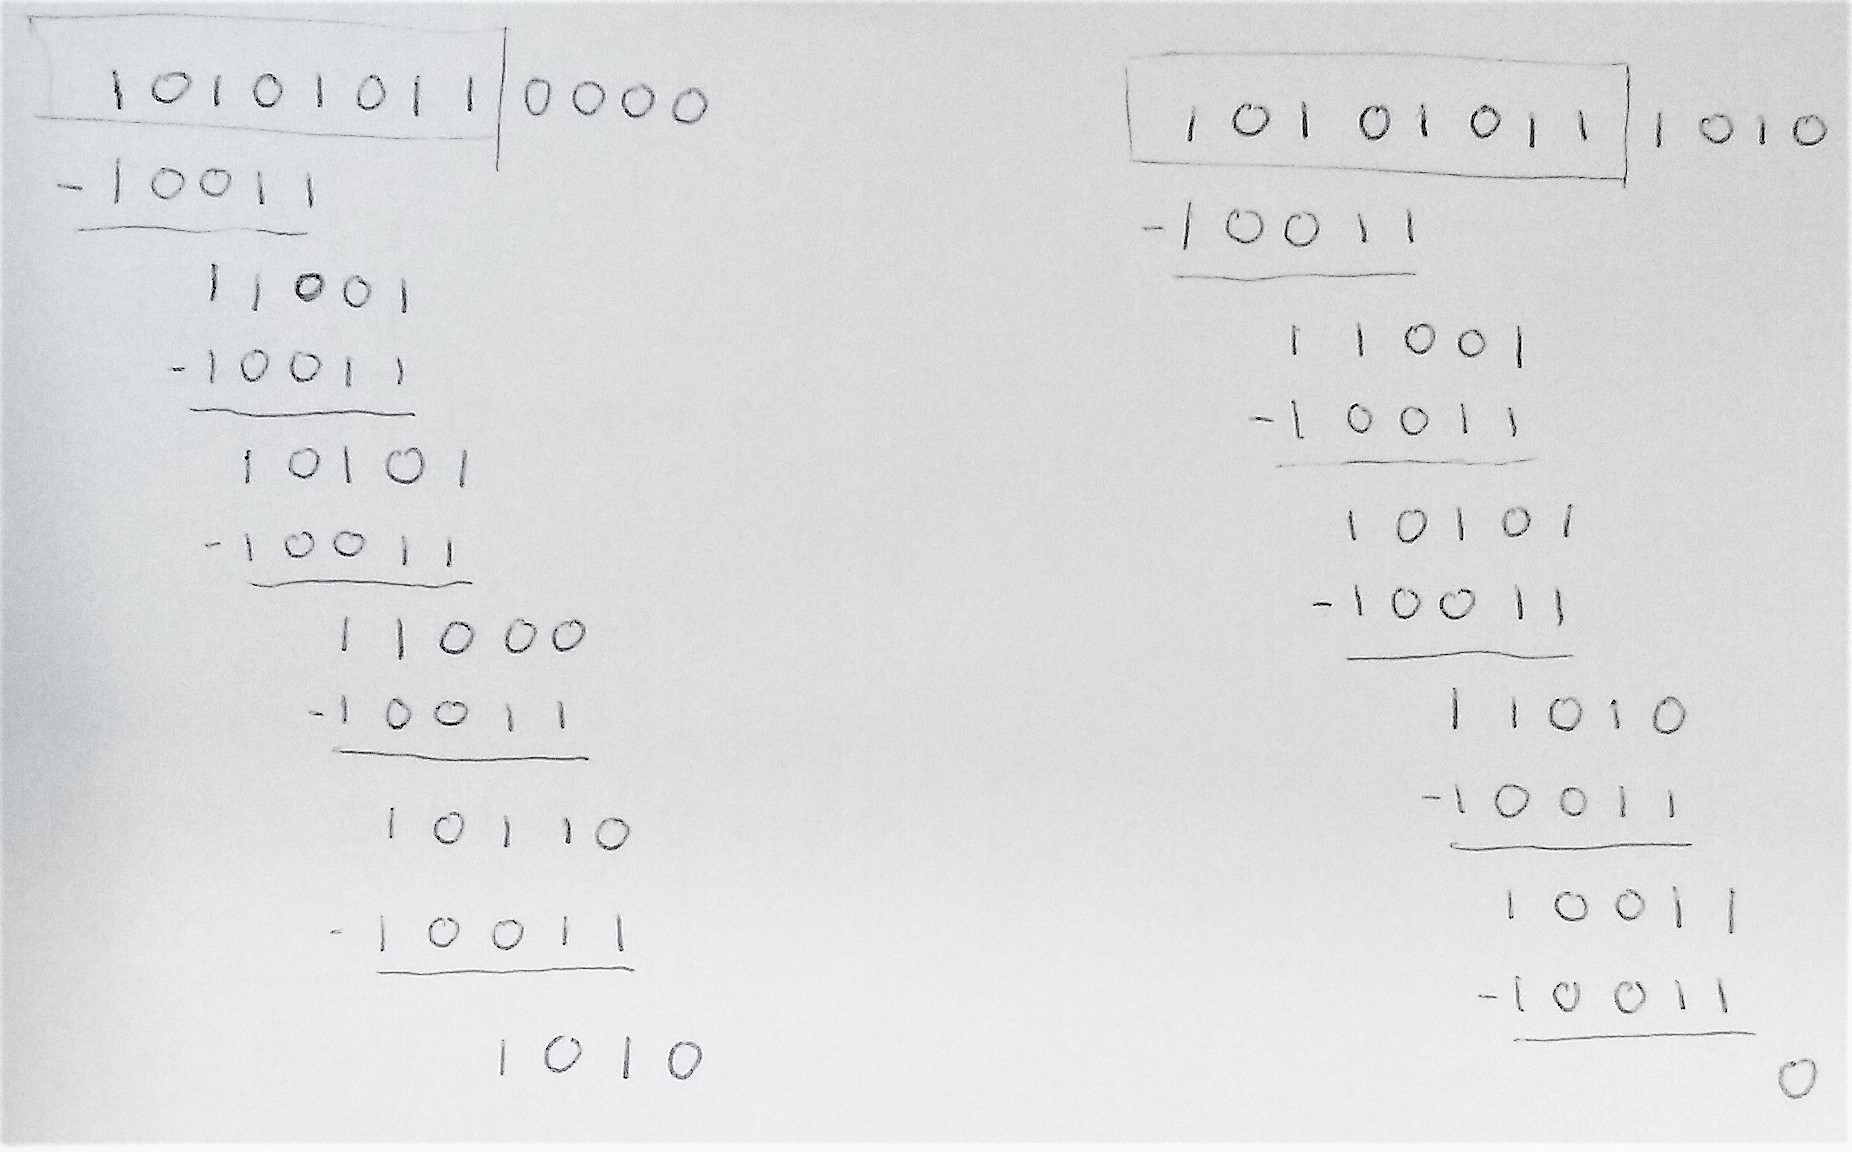 10101011 0000
-10011
11001
-10011
10101
-10011
11000
-10011
10110
-10011
1010
10101011 1010
-10011
11001
-10011
10101
-10011
11010
-10011
10011
-10011
0